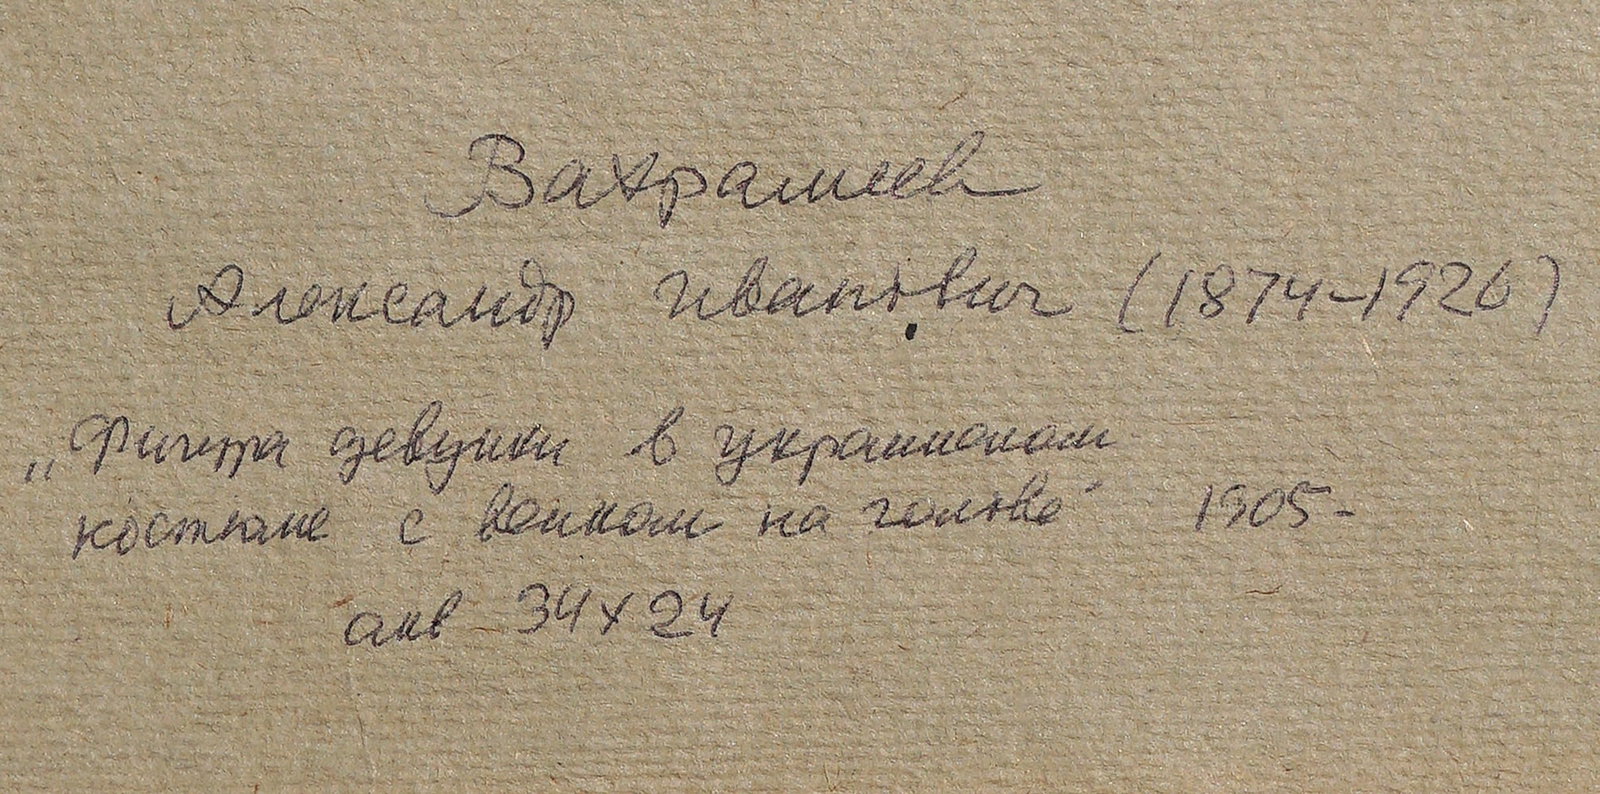 Вахрамеев
Александр Иванович (1874-1926)
„Фигура девушки в украинском
костюме с венком на голове" 1905-
акв 34x24